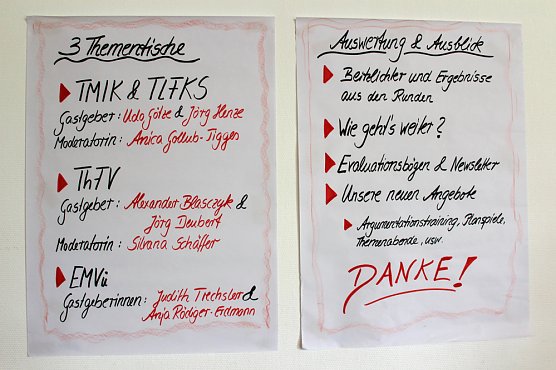 3 Thementische
TMIK & TLFKS
Gastgeber: Udo Götze & Jörg Henze
Moderatorin: Anica Gollub-Tigges
ThFV
Gastgeber: Alexander Blasczyk &
Jörg Deubert
Moderatorin: Silvana Schäffer
EMVü
Gastgeberinnen: Judith &
Anja Rödiger-Erdmann
Auswertung & Ausblick
und Ergebnisse
aus den Runden
Wie geht's weiter?
Evaluationsbögen & Newsletter
Unsere neuen Angebote
Argumentationstraining, Planspiele,
Themenabende, usw.
DANKE!